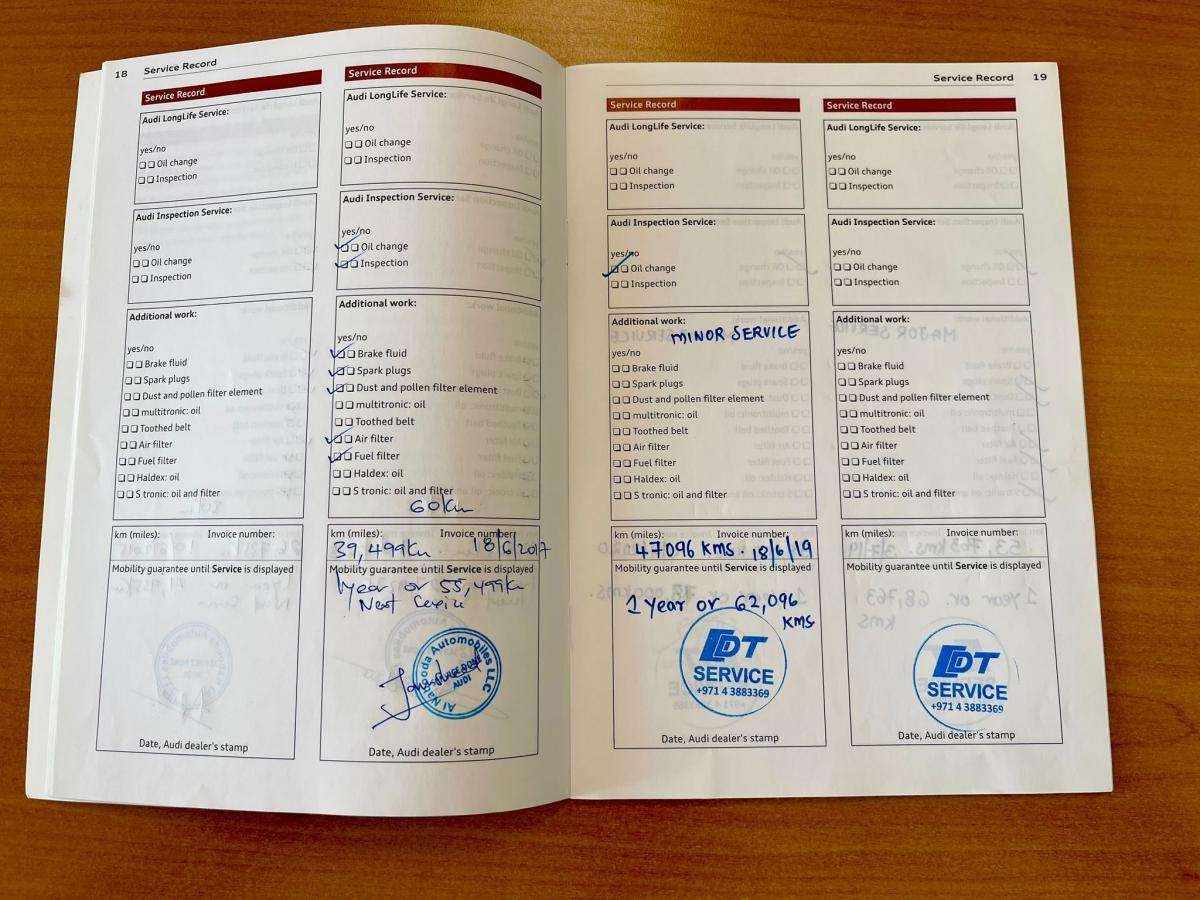 18 Service Record
Service Record
Audi LongLife Service:
yes/no
Oil change
Inspection
Audi Inspection Service:
yes/no
Oil change
Inspection
Additional work:
yes/no
Brake fluid
Spark plugs
Dust and pollen filter element
multitronic: oil
Toothed belt
Air filter
Fuel filter
Haldex: oil
S tronic: oil and filter
km (miles): Invoice number:
Mobility guarantee until Service is displayed
Date, Audi dealer's stamp
Service Record
Audi LongLife Service:
yes/no
Oil change
Inspection
Audi Inspection Service:
yes/no
Oil change
Inspection
Additional work:
yes/no
Brake fluid
Spark plugs
Dust and pollen filter element
multitronic: oil
Toothed belt
Air filter
Fuel filter
Haldex: oil
S tronic: oil and filter
60km
km (miles): Invoice number:
39,499km 18/6/2017
Mobility guarantee until Service is displayed
1 year or 55,499km
Next
Automobiles LLC
AUDI
Date, Audi dealer's stamp
Service Record 19
Service Record
Audi LongLife Service:
yes/no
Oil change
Inspection
Audi Inspection Service:
yes/no
Oil change
Inspection
Additional work:
MINOR SERVICE
yes/no
Brake fluid
Spark plugs
Dust and pollen filter element
multitronic: oil
Toothed belt
Air filter
Fuel filter
Haldex: oil
S tronic: oil and filter
km (miles): Invoice number:
47096 KMS. 18/6/19
Mobility guarantee until Service is displayed
1 year or 62,096
KMS
EDT
SERVICE
+971 4 3883369
Date, Audi dealer's stamp
Service Record
Audi LongLife Service:
yes/no
Oil change
Inspection
Audi Inspection Service:
yes/no
Oil change
Inspection
Additional work:
yes/no
Brake fluid
Spark plugs
Dust and pollen filter element
multitronic: oil
Toothed belt
Air filter
Fuel filter
Haldex: oil
S tronic: oil and filter
km (miles): Invoice number:
Mobility guarantee until Service is displayed
EDT
SERVICE
+971 4 3883369
Date, Audi dealer's stamp